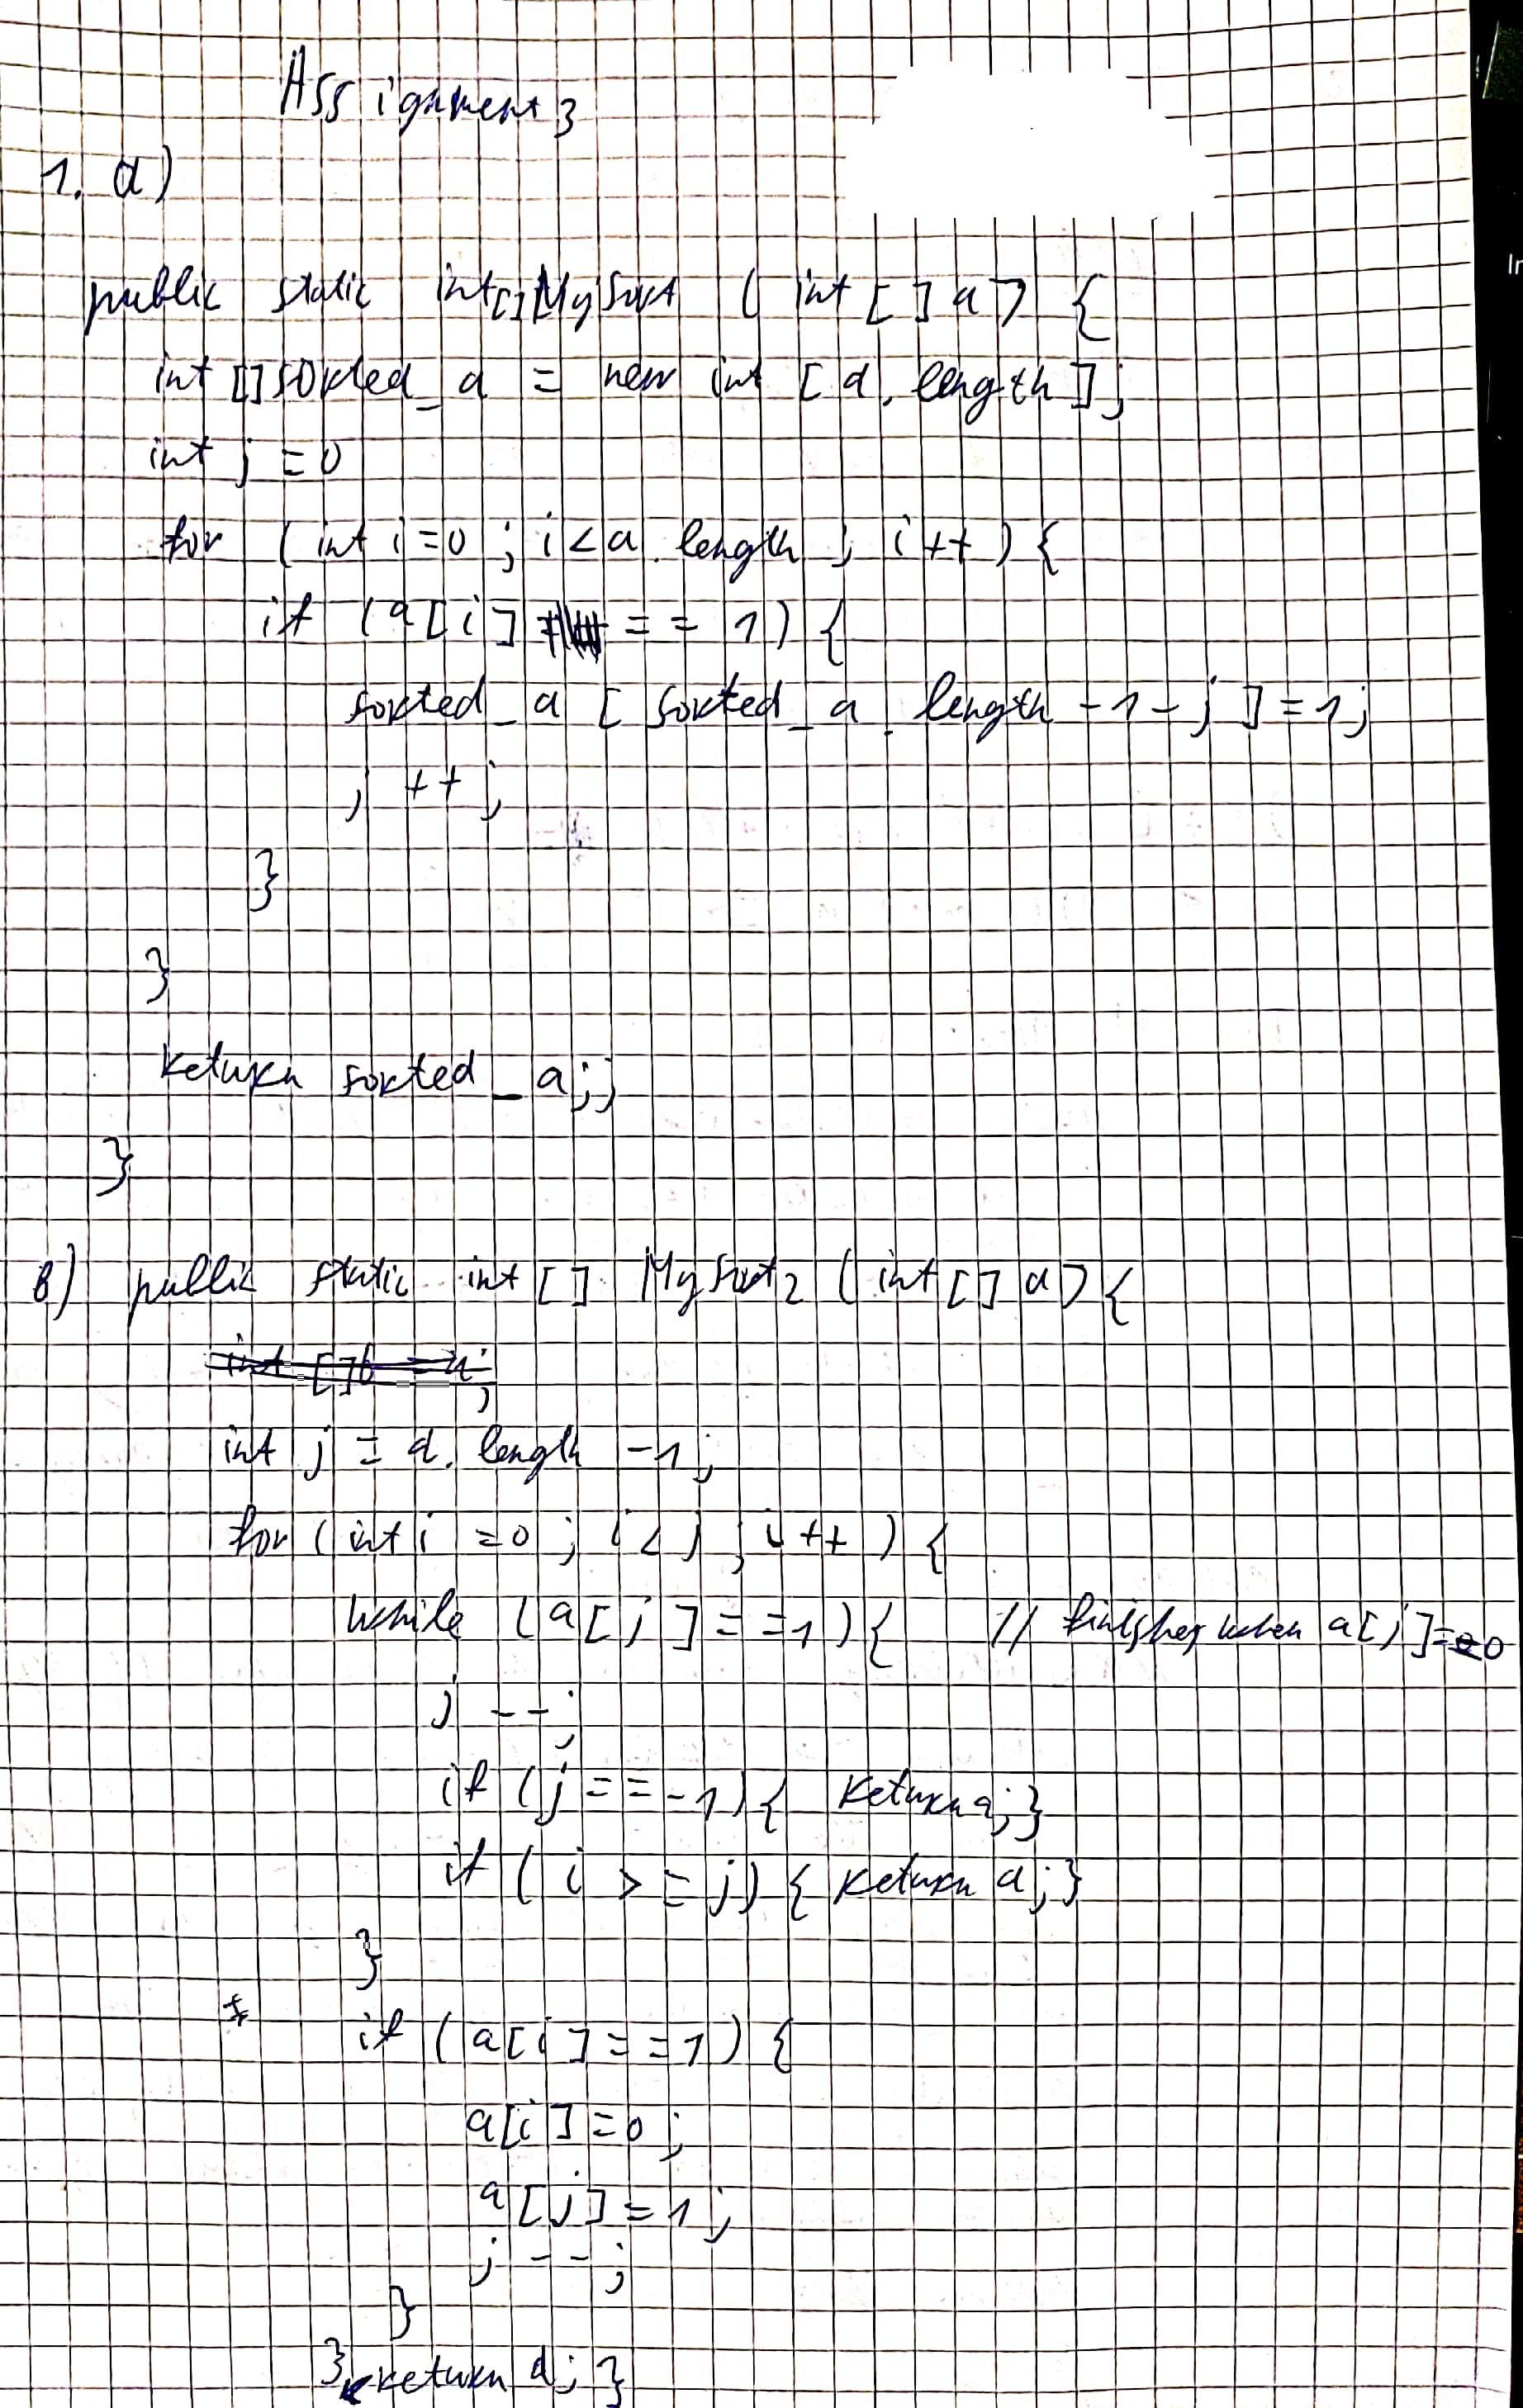 Assignment 3
1. a)
public static int[] MySort ( int [ ] a ) {
int [ ] sorted_a = new int [ a. length ] ;
int j = 0
for ( int i = 0 ; i < a. length ; i ++ ) {
if ( a [ i ] == 1 ) {
sorted_a [ sorted_a. length - 1 - j ] = 1 ;
j ++ ;
}
}
return sorted_a ; ;
}
b) public static int [ ] MySort2 ( int [ ] a ) {
int [ ] b = a ;
int j = a. length - 1 ;
for ( int i = 0 ; i < j ; i ++ ) {
while ( a [ j ] == 1 ) { // finishes when a [ j ] = 0
j -- ;
if ( j == -1 ) { return a ; }
if ( i >= j ) { return a ; }
}
* if ( a [ i ] == 1 ) {
a [ i ] = 0 ;
a [ j ] = 1 ;
j -- ;
}
} return a ; }